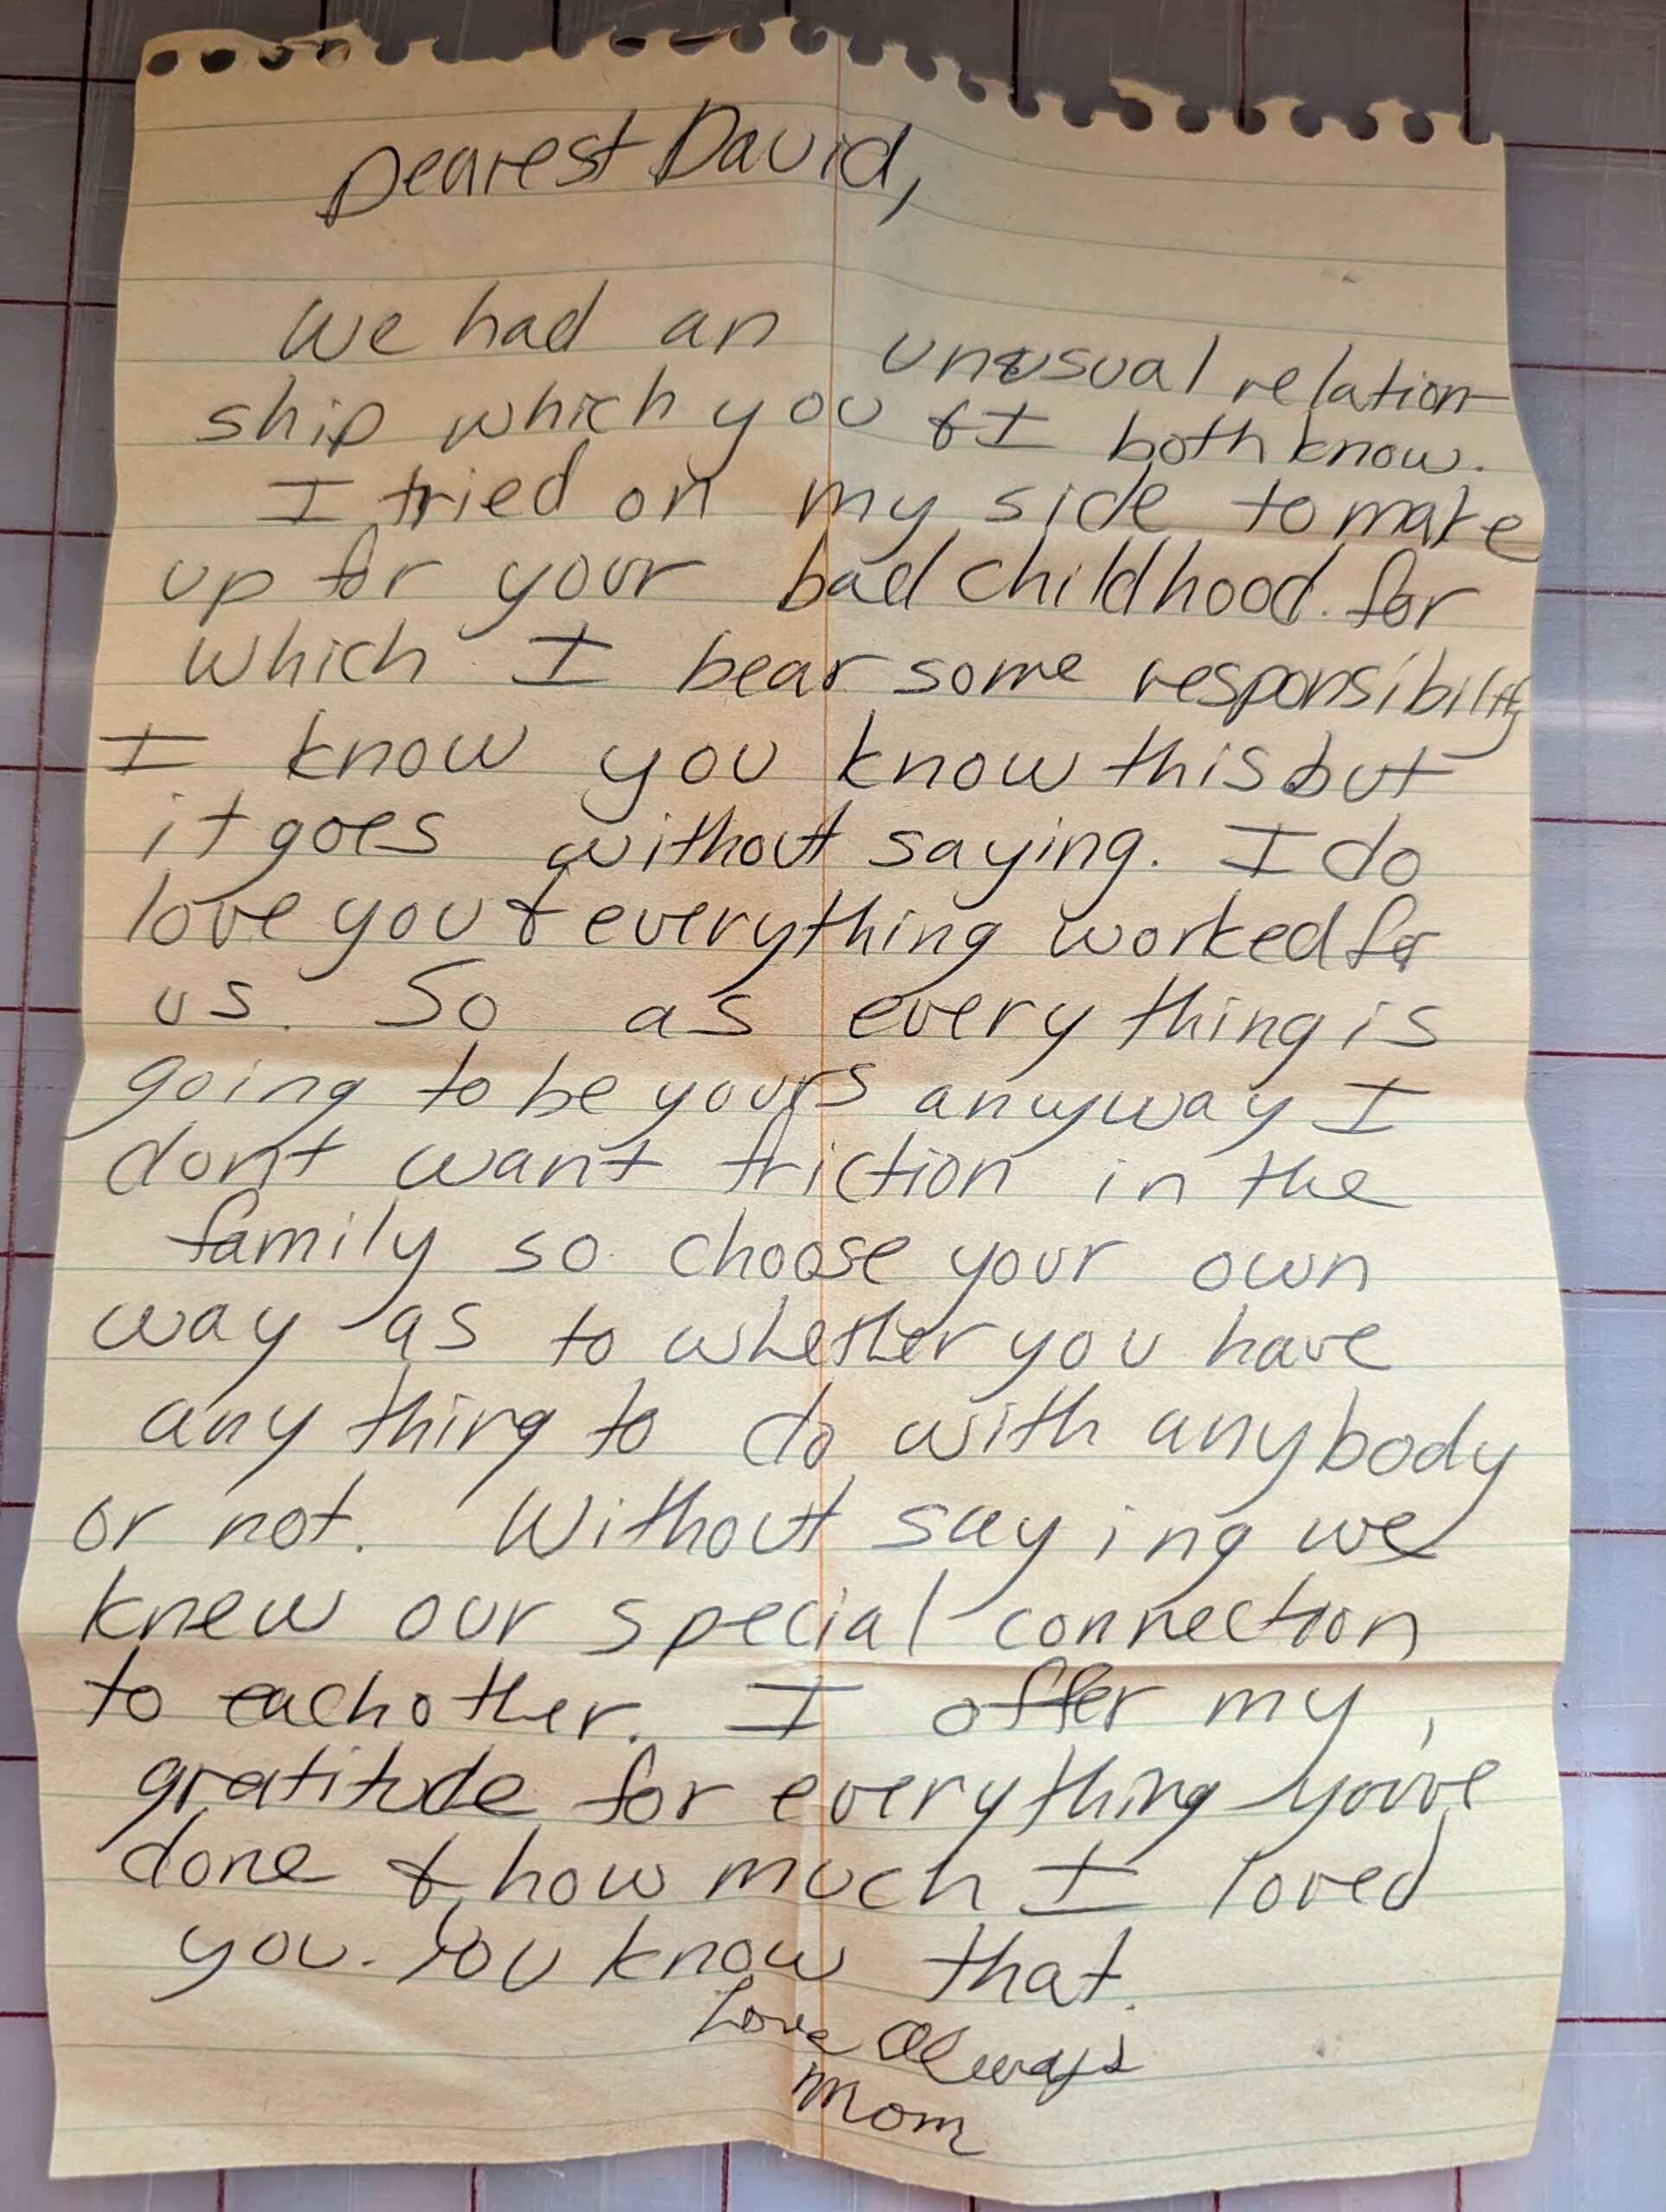 Dearest David,
We had an unusual relation-
ship which you & I both know.
I tried on my side to make
up for your bad childhood. for
which I bear some responsibility
I know you know this but
it goes without saying. I do
love you & everything worked for
us. So as everything is
going to be yours anyway I
dont want friction in the
family so choose your own
way as to whether you have
any thing to do with anybody
or not. Without saying we
knew our special connection
to each other. I offer my
gratitude for everything you've
done & how much I loved
you. You know that.
Love Always
Mom